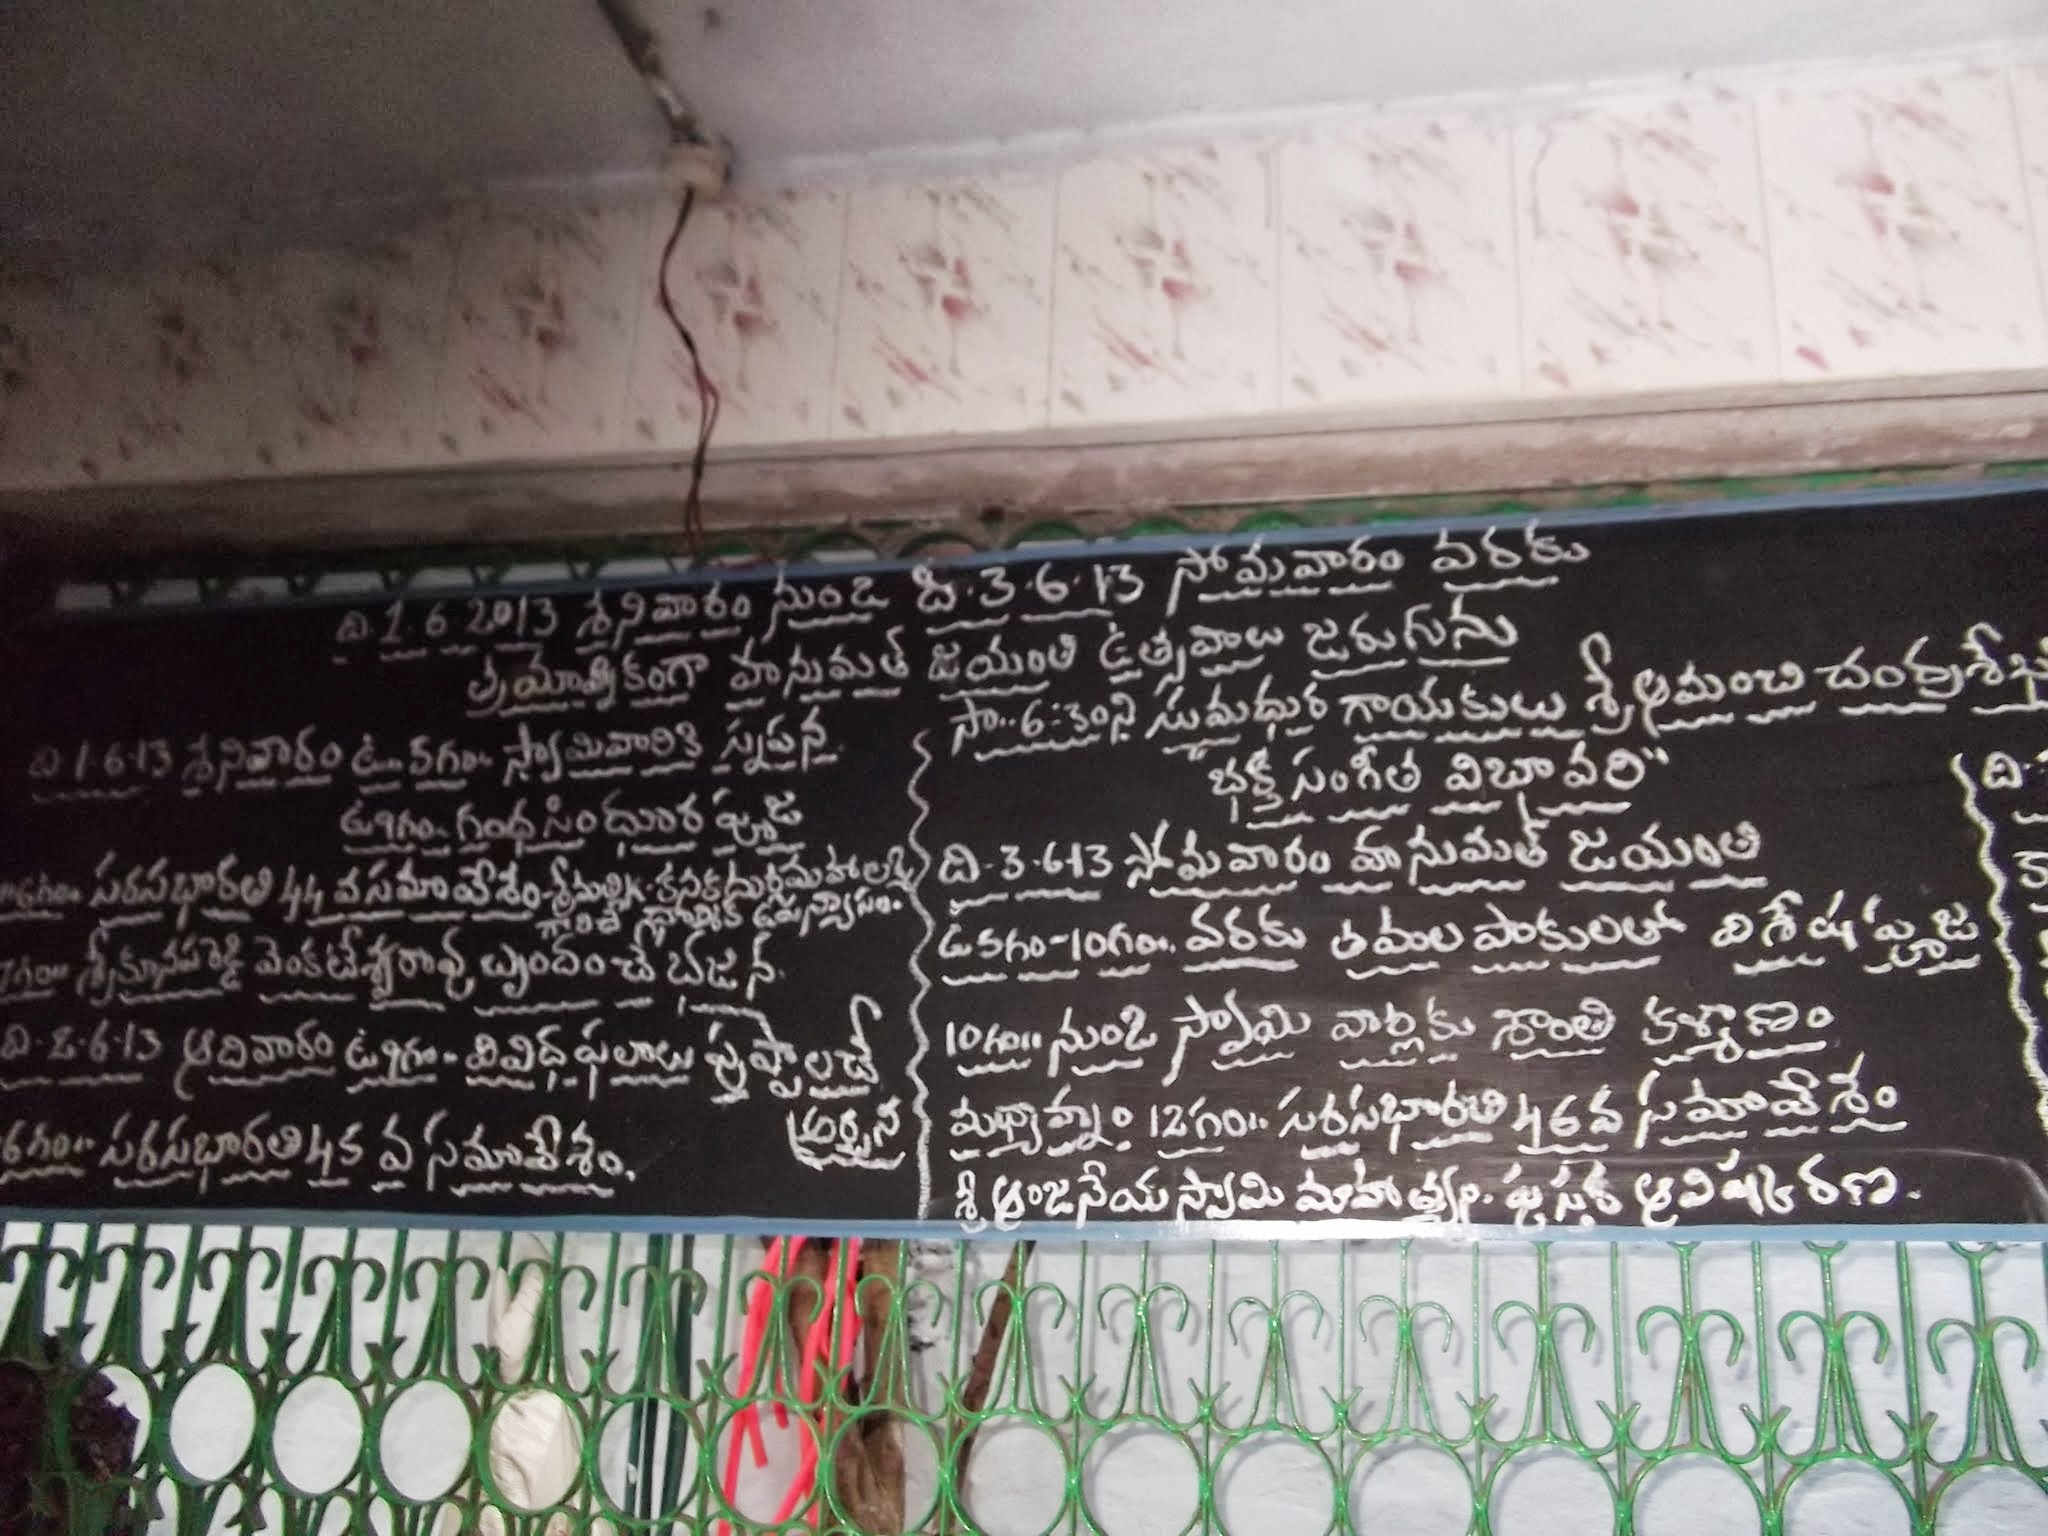 ది.1.6.2013 శనివారం నుండి ది.3.6.13 సోమవారం వరకు
త్రయాహ్నికంగా హనుమత్ జయంతి ఉత్సవాలు జరుగును
ది 1.6.13 శనివారం ఉ.. 5గం.. స్వామివారికి స్నపన.
ఉ9గం.. గంధ సింధూర పూజ
సా6గం.. సరసభారతి 44 వ సమావేశం-శ్రీమల్లిక. కనకదుర్గమహాలక్ష్మి
గారిచే ధార్మిక ఉపన్యాసం.
7గం.. శ్రీకూనపరెడ్డి వెంకటేశ్వరావ్ బృందం చే భజన.
ది.2.6.13 ఆదివారం ఉ9గం.. వివిధ ఫలాలు పుష్పాలచే
అర్చన
6గం.. సరసభారతి 45 వ సమావేశం.
సా..6:30ని సుమధుర గాయకులు శ్రీ ఆమంచి చంద్రశేఖ
"భక్తి సంగీత విభావరి"
ది.3.6.13 సోమవారం హనుమత్ జయంతి
ఉ5గం-10గం.. వరకు తమల పాకులలో విశేష పూజ
10గం.. నుండి స్వామి వార్లకు శాంతి కళ్యాణం
మధ్యాహ్నం 12గం.. సరసభారతి 46వ సమావేశం
శ్రీ ఆంజనేయ స్వామి మాహత్మ్యం. పుస్తక ఆవిష్కరణ.
ది.